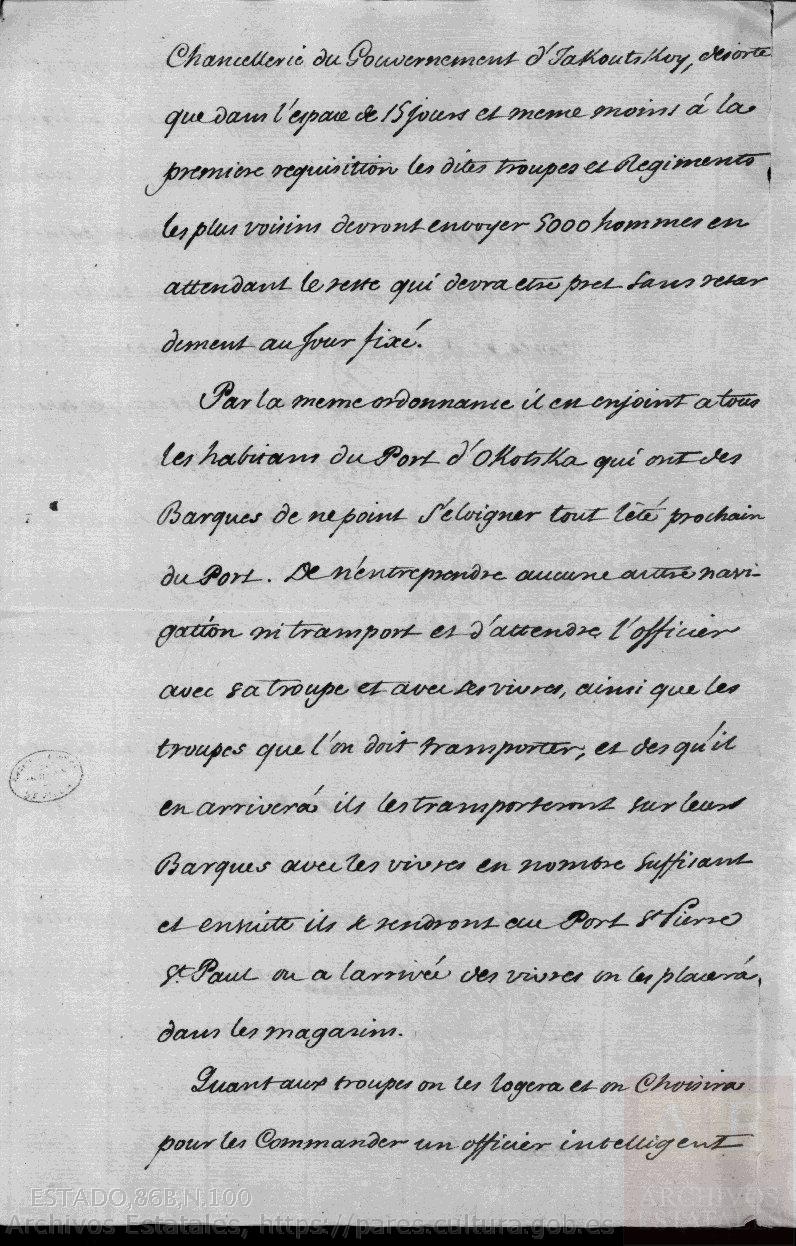 Chancellerie du Gouvernement d'Jakoutskoy, desorte
que dans l'espace de 15 jours et meme moins á la
premiere requisition les dites troupes et Regiments
les plus voisins devront envoyer 5000 hommes en
attendant le reste qui devra etre pret sans retar
dement au Jour fixé.
Par la meme ordonnance il en enjoint a tous
les habitans du Port d'OKotsKa qui ont des
Barques de ne point s'éloigner tout l'été prochain
du Port. De n'entreprendre aucune autre navi-
gation ni transport et d'attendre l'officier
avec sa troupe et avec ses vivres, ainsi que les
troupes que l'on doit transporter; et des qu'il
en arriverá ils les transporteront sur leurs
Barques avec les vivres en nombre suffisant
et ensuite ils se rendront au Port St Pierre
St. Paul ou a larrivée des vivres on les placerá,
dans les magasins.
Quant aux troupes on les logera et on Choisira
pour les Commander un officier intelligent
ESTADO,86B,N.100
Archivos Estatales, https://pares.cultura.gob.es
ARCHIVOS
ESTATALES